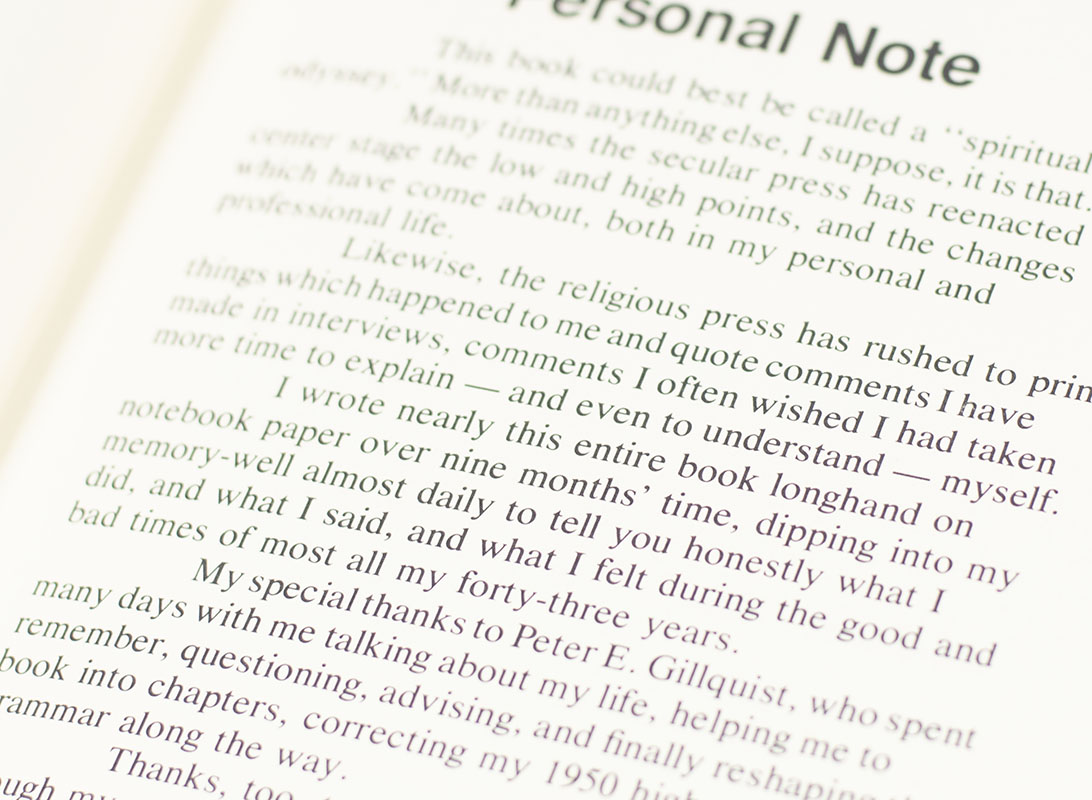 Personal Note
This book could best be called a “spiritual
odyssey.” More than anything else, I suppose, it is that.
Many times the secular press has reenacted
center stage the low and high points, and the changes
which have come about, both in my personal and
professional life.
Likewise, the religious press has rushed to prin
things which happened to me and quote comments I have
made in interviews, comments I often wished I had taken
more time to explain — and even to understand — myself.
I wrote nearly this entire book longhand on
notebook paper over nine months’ time, dipping into my
memory-well almost daily to tell you honestly what I
did, and what I said, and what I felt during the good and
bad times of most all my forty-three years.
My special thanks to Peter E. Gillquist, who spent
many days with me talking about my life, helping me to
remember, questioning, advising, and finally reshaping
book into chapters, correcting my 1950 high
rammar along the way.
Thanks, too,
ough my